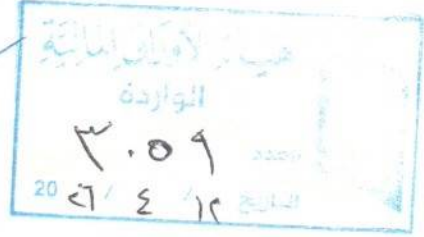 هيئة الأوراق المالية
الواردة
العدد ٣٠٥٩
التاريخ ١٢ / ٤ / ٢٦ 20